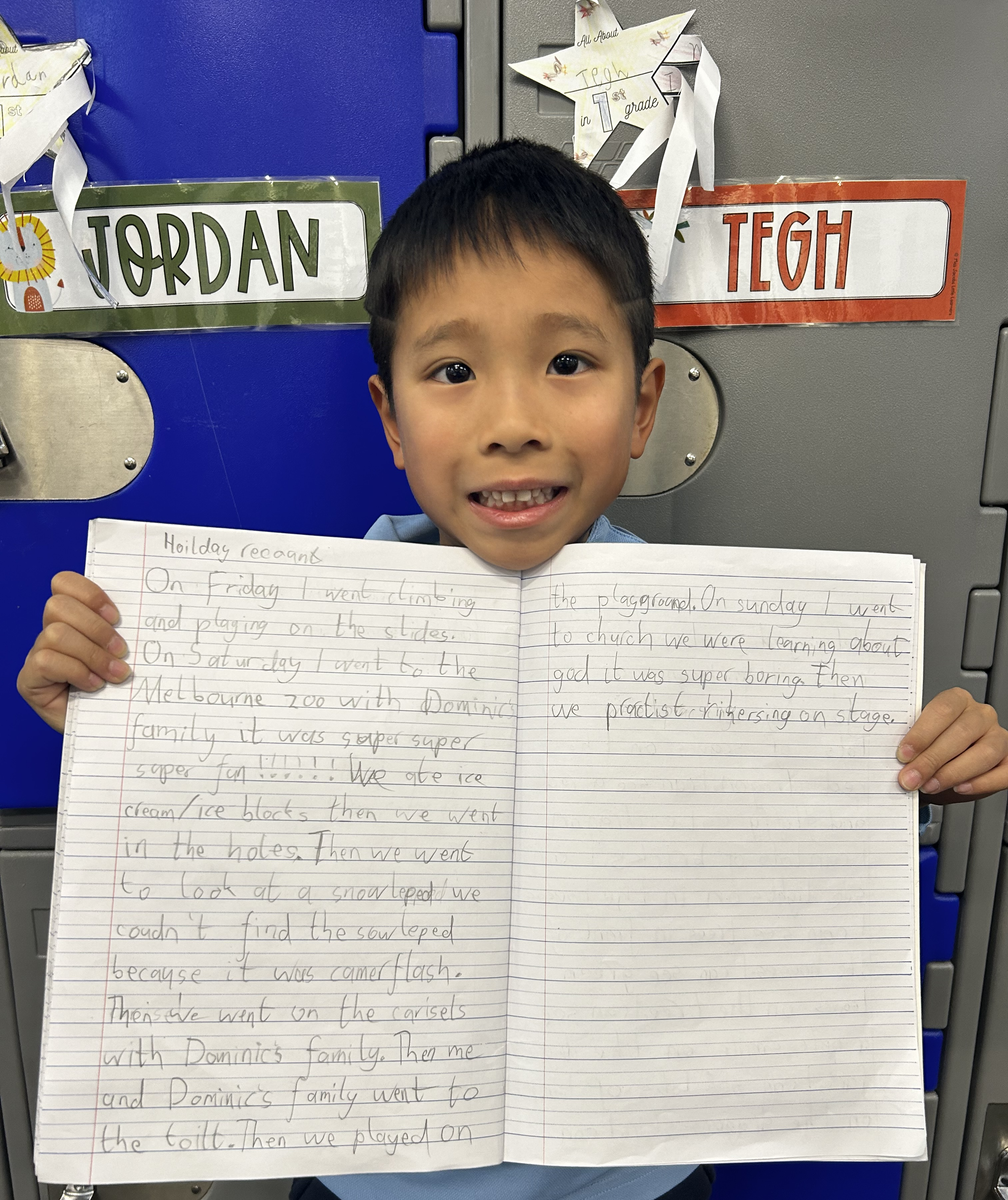 About
rdan
1st
All About
Tegh
in 1st grade
JORDAN
TEGH
Hoilday recaant
On Friday I went climbing
and playing on the slides.
On Saturday I went to the
Melbourne zoo with Dominic's
family it was super super
super fun !!!!!! We ate ice
cream/ice blocks then we went
in the holes. Then we went
to look at a snow leped we
coudn't find the sow leped
because it was camerflash.
went on the carisels
with Dominic's family. Then me
and Dominic's family went to
the toilt. Then we played on
the playground. On sunday I went
to church we were learning about
god it was super boring. Then
we practist on stage.